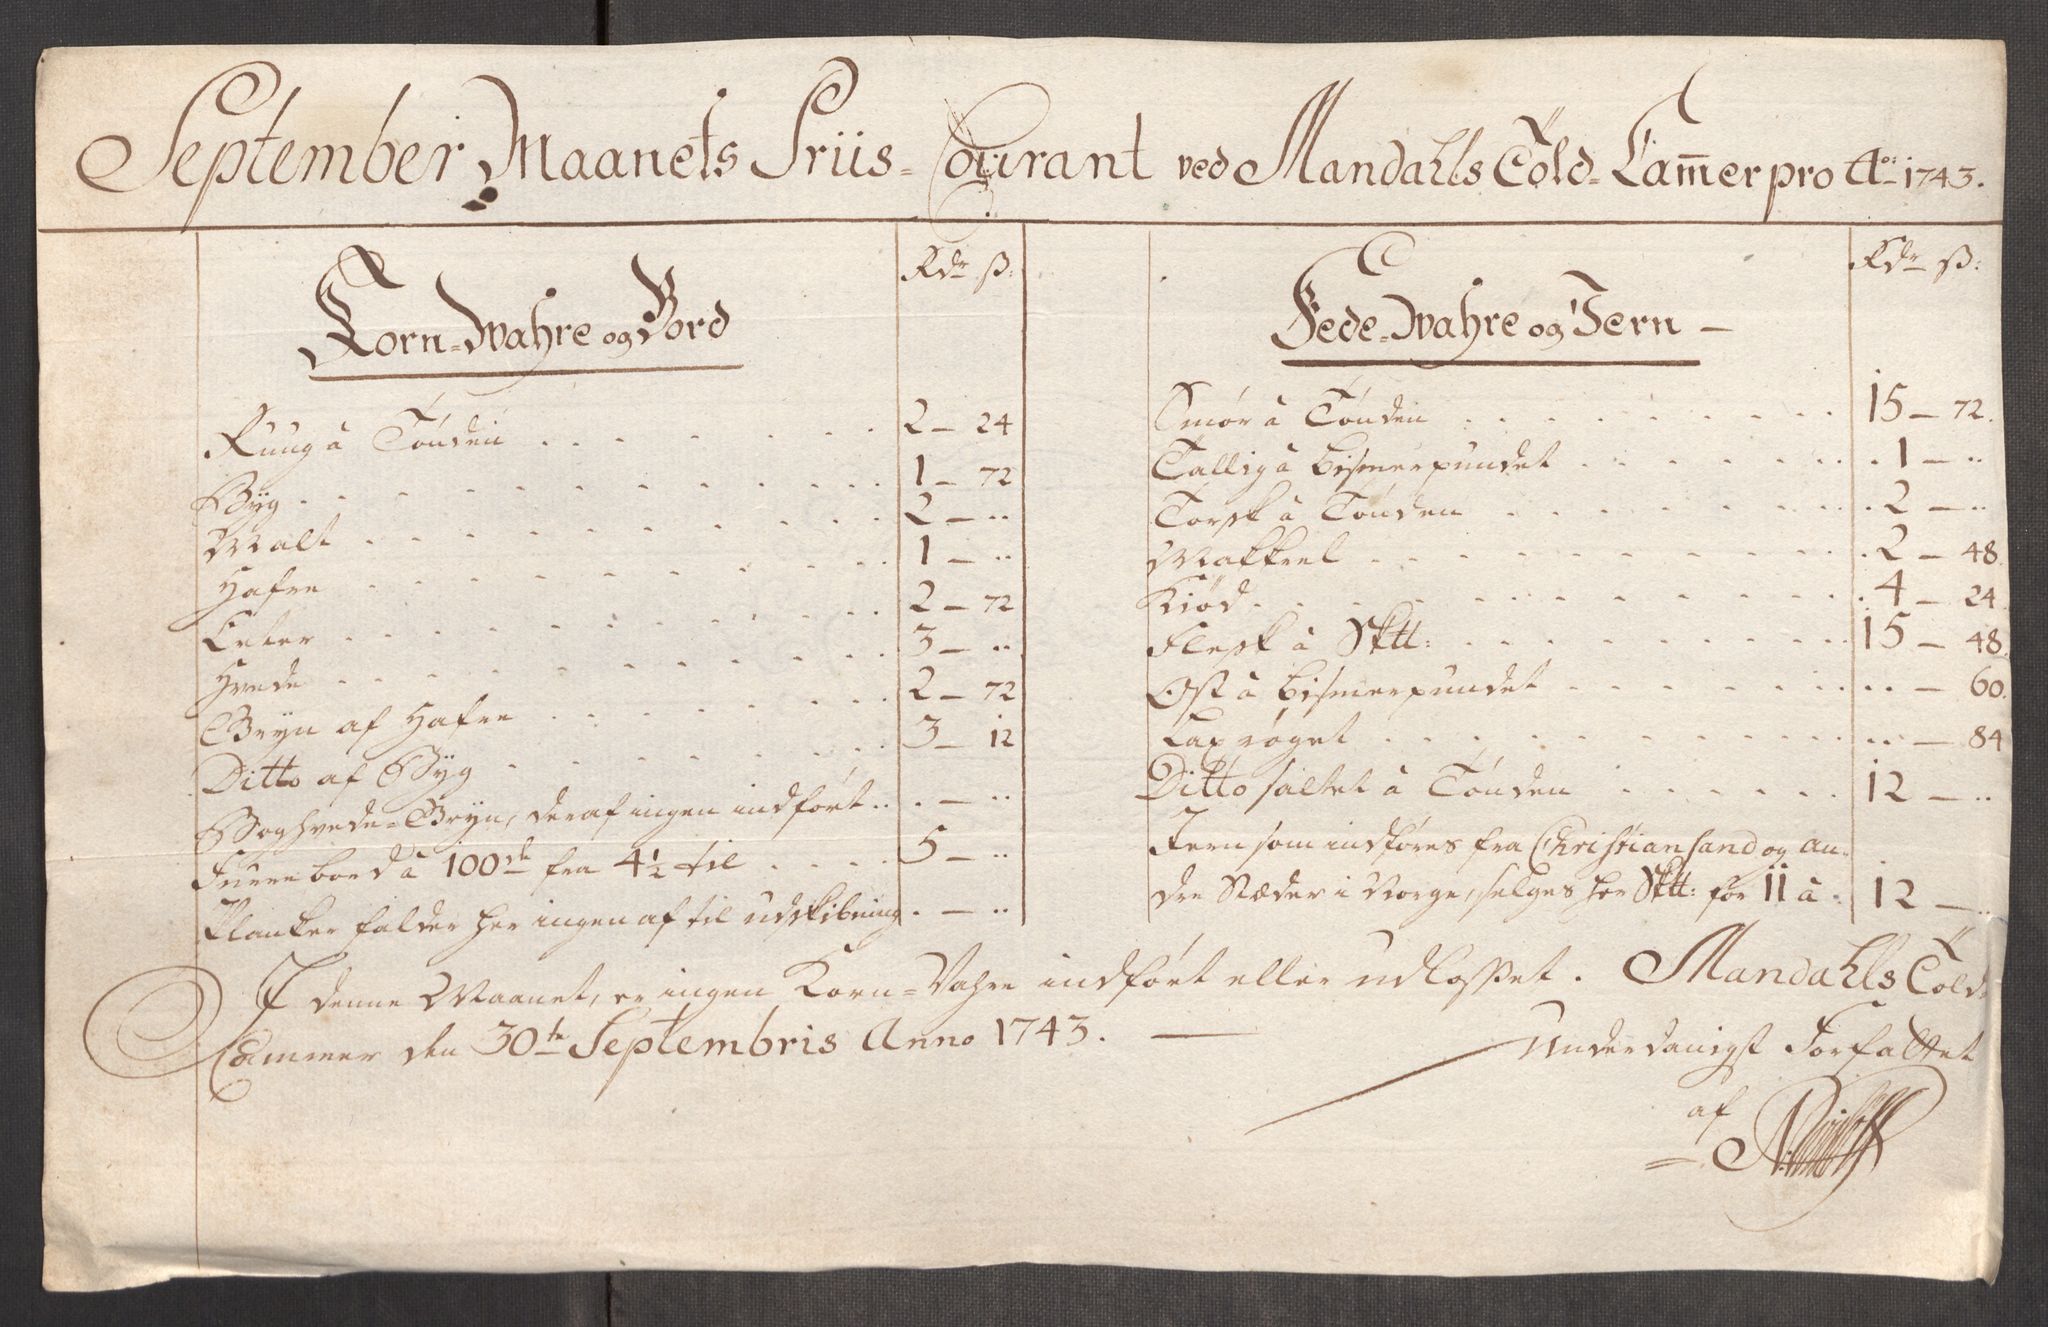 September Maanets Priis-Courant ved Mandahls Told-Cam̅er pro Ao: 1743.
Rdr ß:
Korn-Wahre og Bord
Ruug â Tönden 2 - 24
Byg 1 - 72
Malt 2 - ..
Hafre 1 - ..
Erter 2 - 72
Hvede 3 - ..
Gryn af Hafre 2 - 72
Ditto af Byg 3 - 12
Boghvede-Gryn, deraf ingen indfört . - ..
Fuure bord â 100de fra 4½ til 5 - ..
Planker falder her ingen af til udskibning . - ..
Rdr ß:
Fede-Wahre og Jern
Smör â Tönden 15 - 72.
Tallig â bismerpundet 1 - ..
Torsk â Tönden 2 - ..
Makkrel 2 - 48
Kiöd 4 - 24
Flesk â Sktt: 15 - 48.
Ost â bismerpundet .. - 60.
Lax röget .. - 84
Ditto saltet â Tönden 12 - ..
Jern som indföres fra Christiansand og an-
dre Stæder i Norge, selges her Sktt: for 11 â 12 - ..
I denne Maanet, er ingen Korn-Vahre indfört eller udlosset. Mandahls Told-
Cammer den 30te Septembris Anno 1743.
Underdanigst Forfattet
af